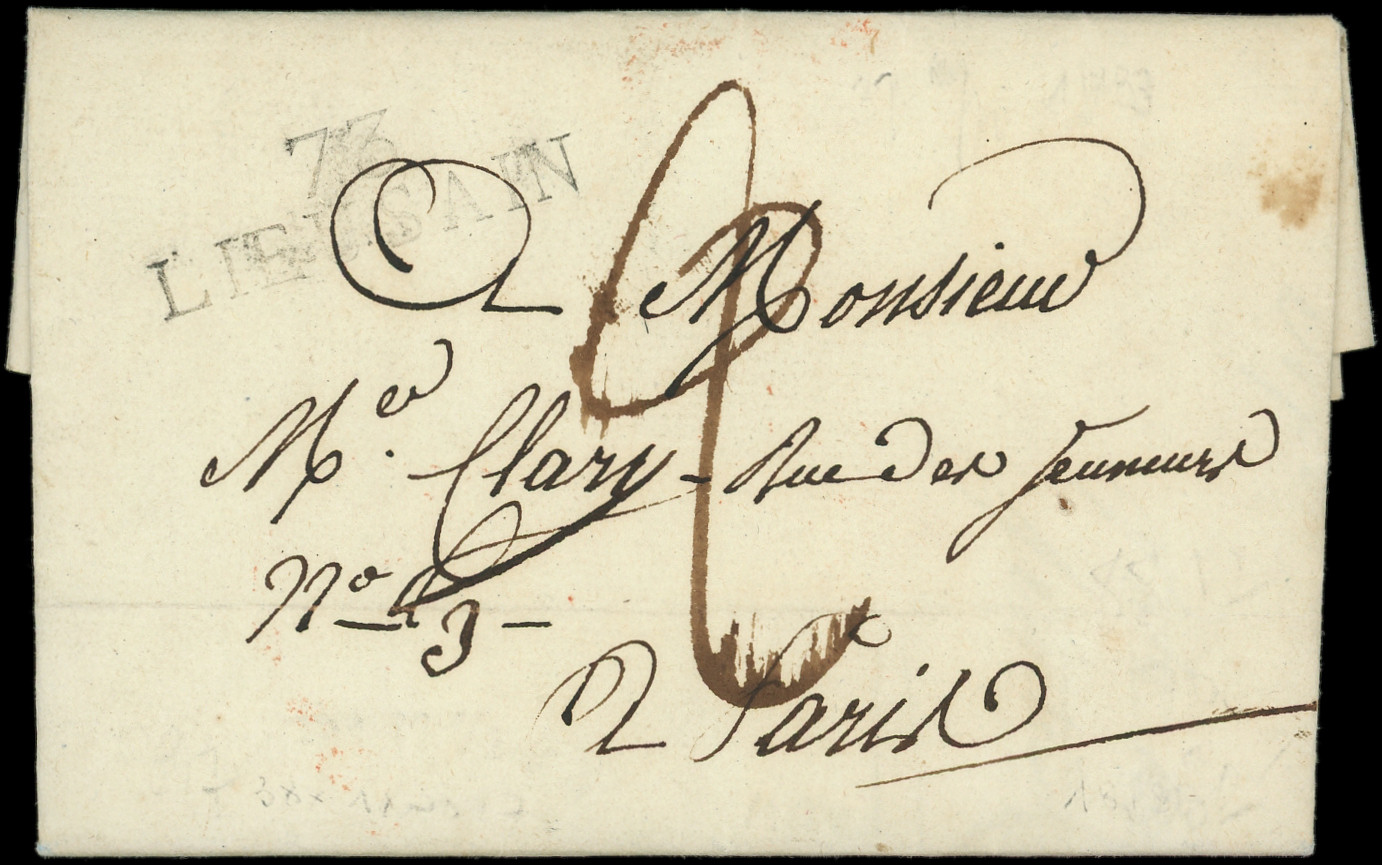 73
LIEUSAIN
A Monsieur
Mer. Clary - Rue des Jeuneurs
No
à Paris